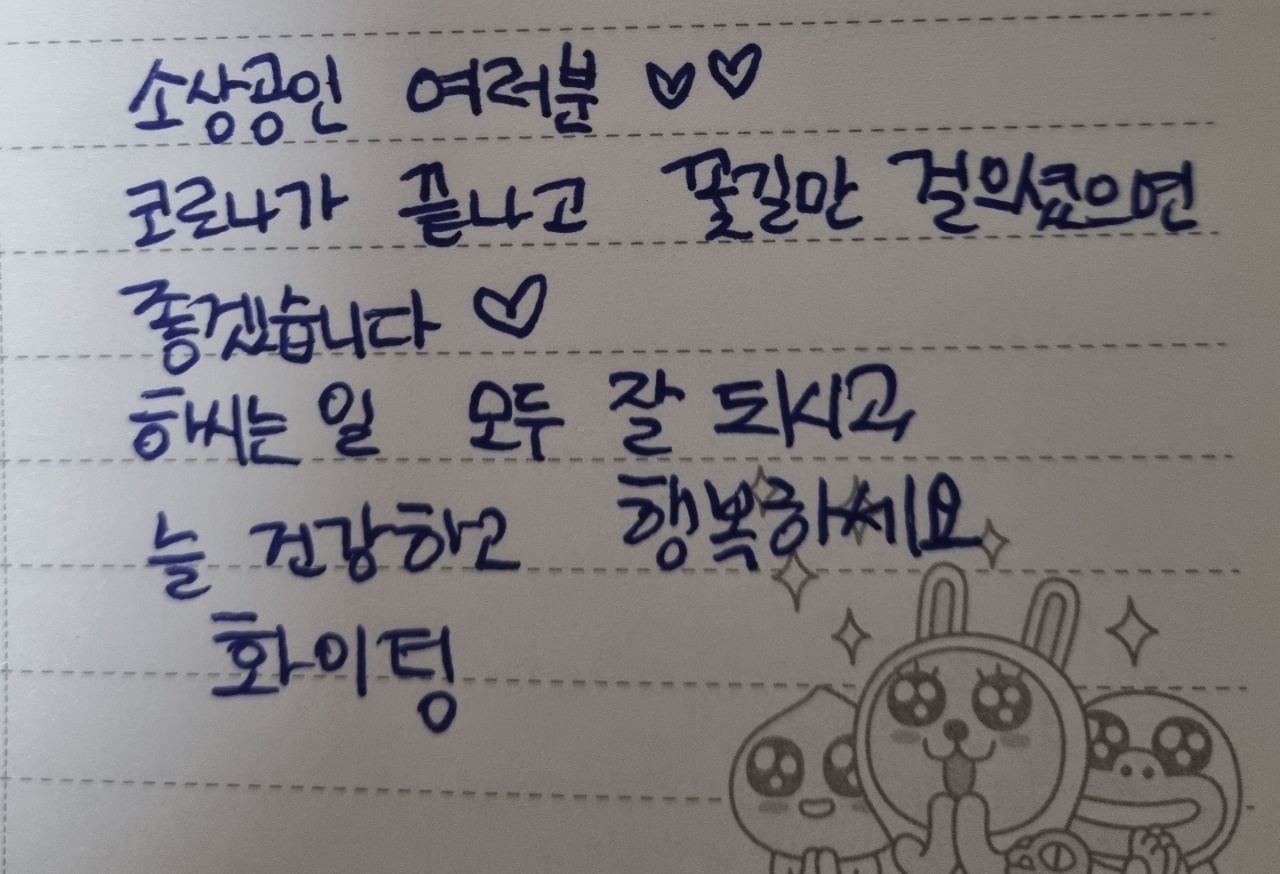 소상공인 여러분 ♡♡
코로나가 끝나고 꽃길만 걸의셨으면
좋겠습니다 ♡
하시는 일 모두 잘 되시고,
늘 건강하고 행복하세요
화이팅